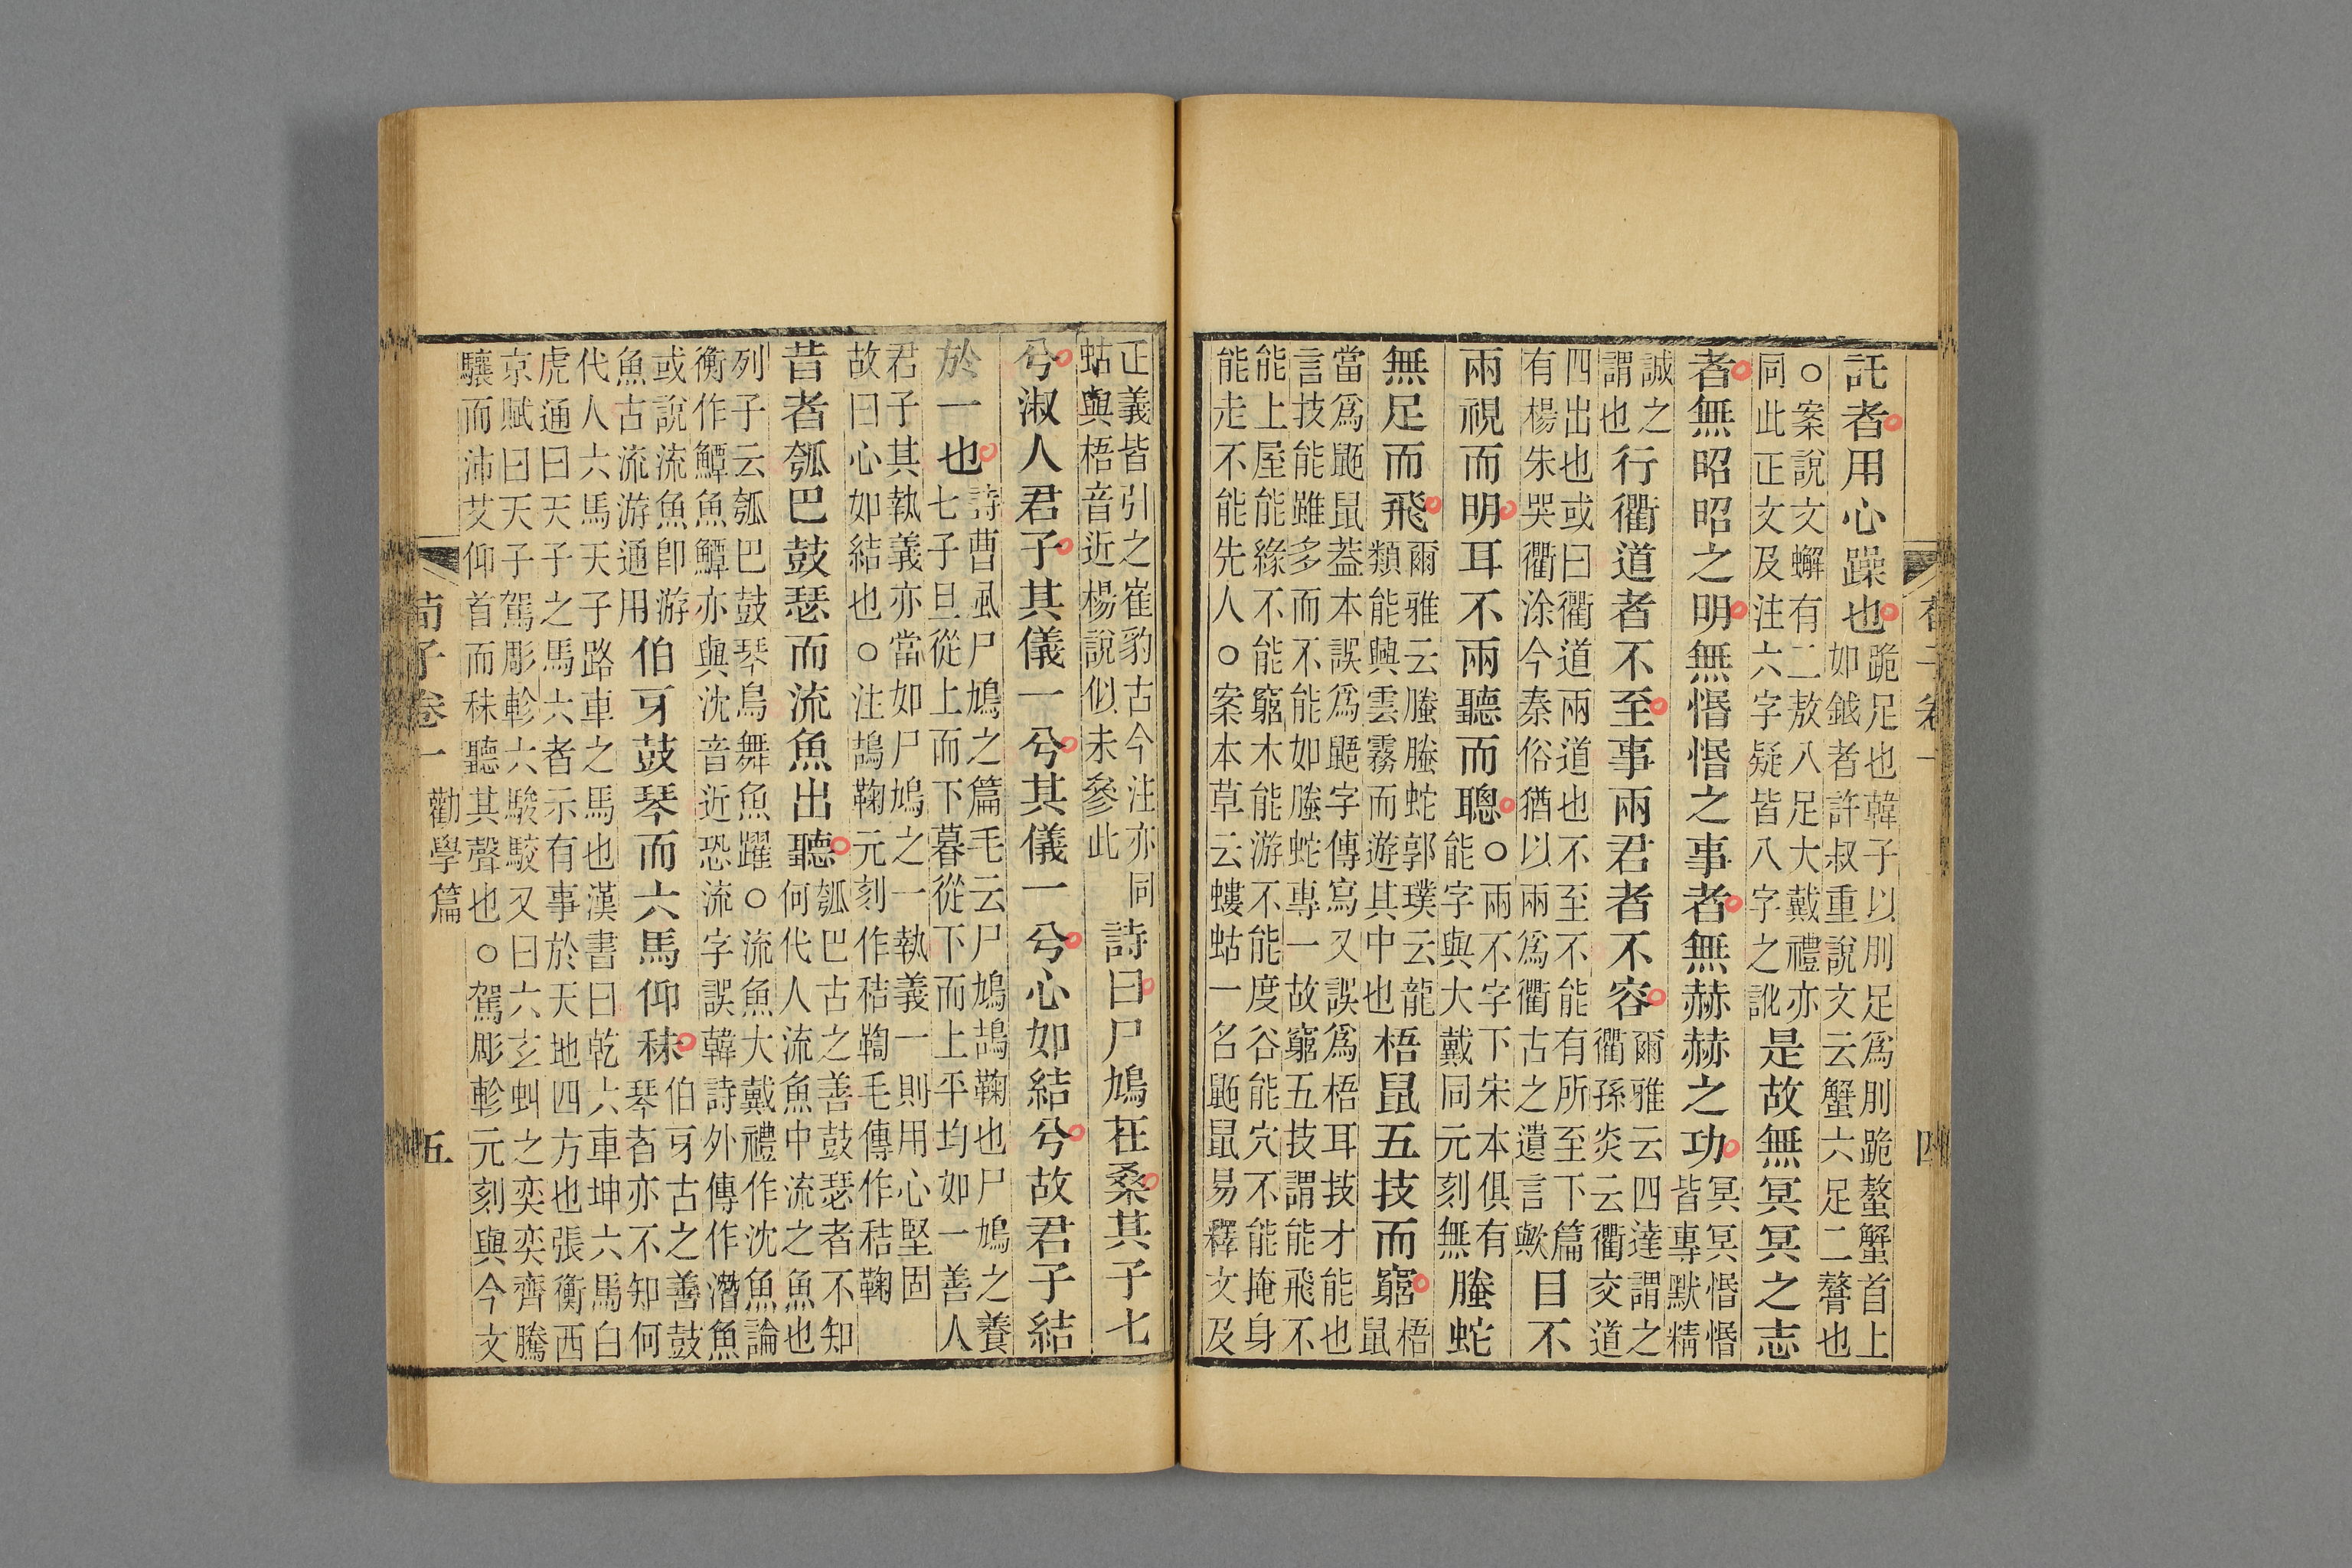 託者用心躁也跪足也韓子以刖足爲刖跪螯蟹首上如鉞者許叔重說文云蟹六足二螯也
○案說文蠏有二敖八足大戴禮亦同此正文及注六字疑皆八字之訛是故無冥冥之志
者無昭昭之明無惛惛之事者無赫赫之功冥冥惛惛皆專默精
誠之謂也行衢道者不至事兩君者不容爾雅云四達謂之衢孫炎云衢交道
四出也或曰衢道兩道也不至不能有所至下篇有楊朱哭衢涂今秦俗猶以兩爲衢古之遺言歟目不
兩視而明耳不兩聽而聰○兩不字下宋本俱有能字與大戴同元刻無螣蛇
無足而飛爾雅云螣螣蛇郭璞云龍類能興雲霧而遊其中也梧鼠五技而窮梧鼠
當爲鼫鼠葢本誤爲鼯字傳寫又誤爲梧耳技才能也言技能雖多而不能如螣蛇專一故窮五技謂能飛不
能上屋能緣不能窮木能游不能度谷能穴不能掩身能走不能先人○案本草云螻蛄一名鼫鼠易釋文及
正義皆引之崔豹古今注亦同蛄與梧音近楊說似未參此詩曰尸鳩在桑其子七
兮淑人君子其儀一兮其儀一兮心如結兮故君子結
於一也詩曹風尸鳩之篇毛云尸鳩鴶鞠也尸鳩之養七子旦從上而下暮從下而上平均如一善人
君子其執義亦當如尸鳩之一執義一則用心堅固故曰心如結也○注鴶鞠元刻作秸鞫毛傳作秸鞠
昔者瓠巴鼓瑟而流魚出聽瓠巴古之善鼓瑟者不知何代人流魚中流之魚也
列子云瓠巴鼓琴鳥舞魚躍○流魚大戴禮作沈魚論衡作鱏魚鱏亦與沈音近恐流字誤韓詩外傳作潛魚
或說流魚卽游魚古流游通用伯牙鼓琴而六馬仰秣伯牙古之善鼓琴者亦不知何
代人六馬天子路車之馬也漢書曰乾六車坤六馬白虎通曰天子之馬六者示有事於天地四方也張衡西
京賦曰天子駕彫軫六駿駮又曰六玄虯之奕奕齊騰驤而沛艾仰首而秣聽其聲也○駕彫軫元刻與今文
荀子卷一 勸學篇 五